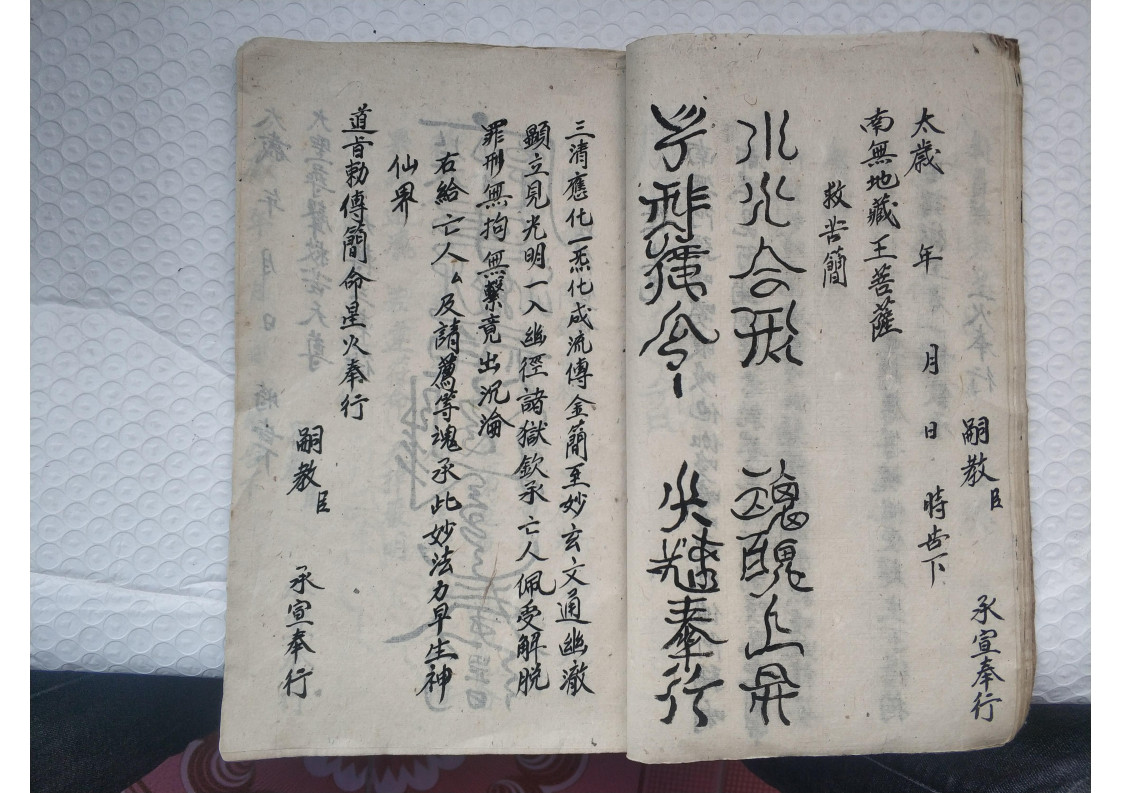 嗣教臣 承宣奉行
太歲 年 月 日 時告下
南無地藏王菩薩
救苦簡
水火合形 魂魄上升
奉行
三清應化一炁化成流傳金簡至妙玄文通幽澈
顯立見光明一入幽徑諸獄欽承亡人佩受解脱
罪刑無拘無繫竟出沉淪
右給亡人厶及請薦等魂承此妙法力早生神
仙界
道旨勅傳簡命星火奉行
嗣教臣 承宣奉行